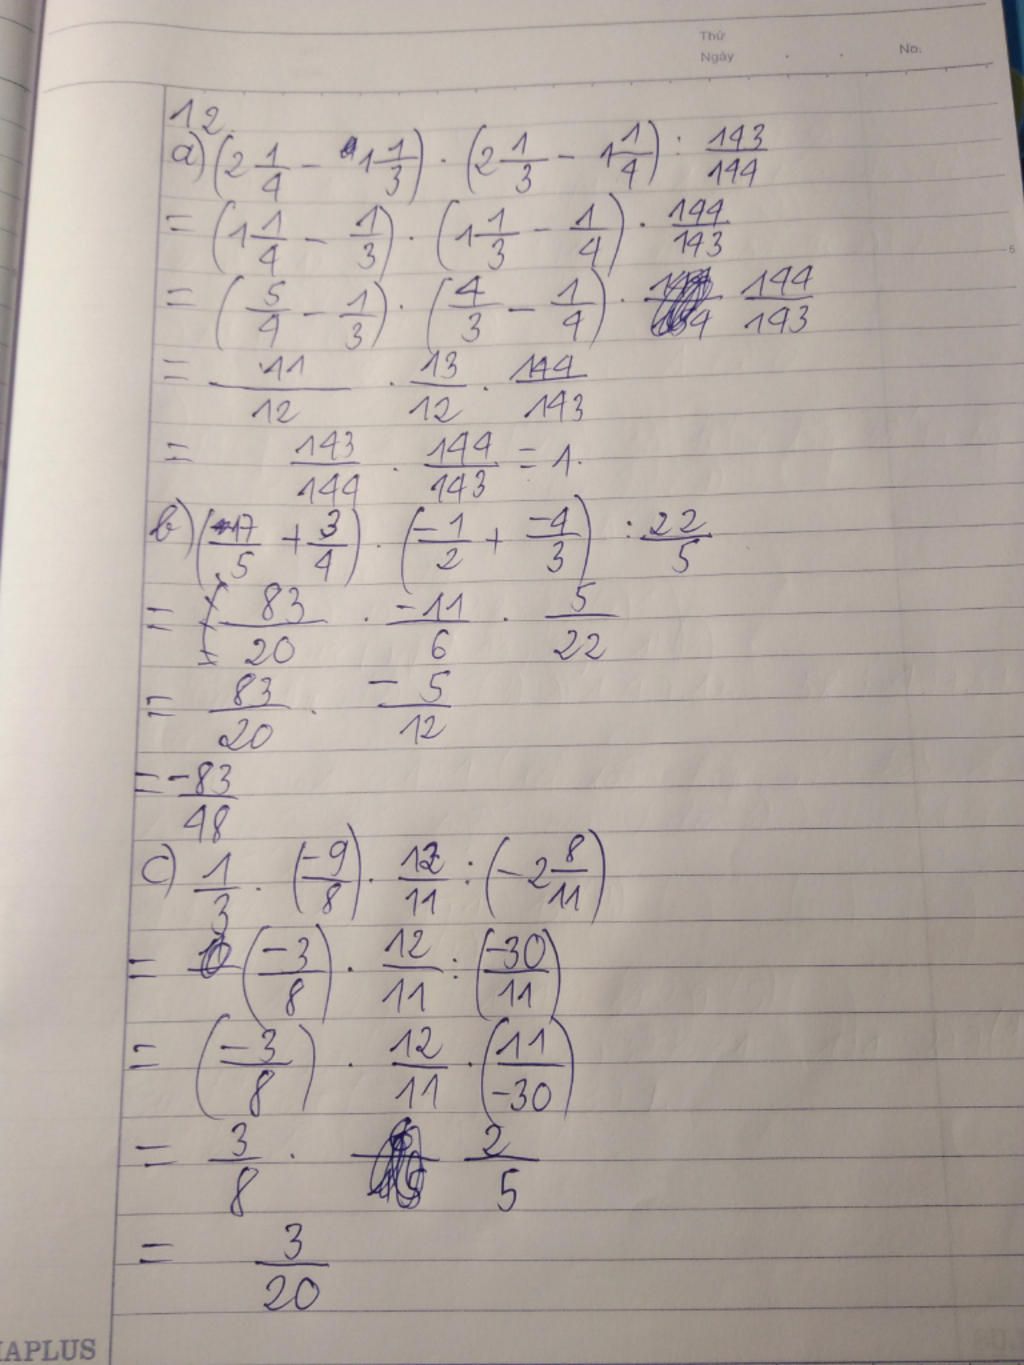 Thứ
Ngày . . No.
12
a) (2 1/4 - 1 1/3) . (2 1/3 - 1 1/4) : 143/144
= (1 1/4 - 1/3) . (1 1/3 - 1/4) . 144/143
= (5/4 - 1/3) . (4/3 - 1/4) . 144/143
= 11/12 . 13/12 . 144/143
= 143/144 . 144/143 = 1.
b) (17/5 + 3/4) . (-1/2 + -4/3) : 22/5
= 83/20 . -11/6 . 5/22
= 83/20 . -5/12
= -83/48
c) 1/3 . (-9/8) . 12/11 : (-2 8/11)
= (-3/8) . 12/11 : (-30/11)
= (-3/8) . 12/11 . (11/-30)
= 3/8 . 2/5
= 3/20
5
IAPLUS